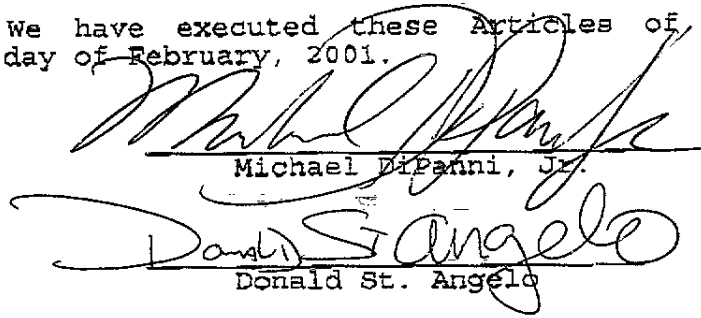 We have executed these Articles of
day of February, 2001.
Michael DiPanni, Jr.
Michael DiPanni, Jr.
Donald St Angelo
Donald St. Angelo